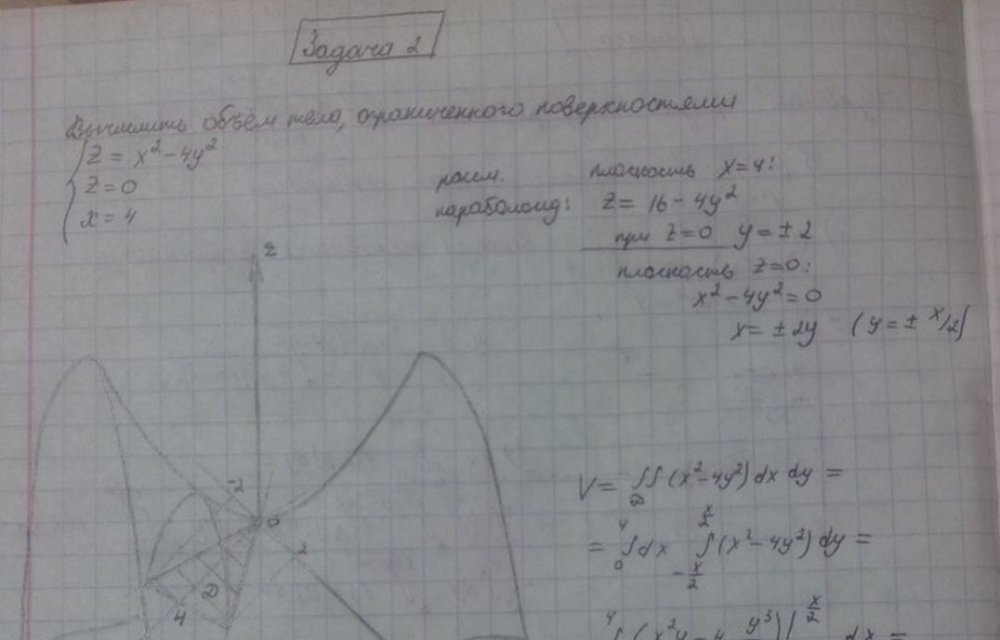 Задача 2
Вычислить объём тела, ограниченного поверхностями
z = x² - 4y²
z = 0
x = 4
рассм. плоскость x = 4:
параболоид: z = 16 - 4y²
при z = 0 y = ± 2
плоскость z = 0:
x² - 4y² = 0
x = ± 2y (y = ± x/2)
z
-2
0
2
D
4
V = ∬_D (x² - 4y²) dx dy =
= ∫_0^4 dx ∫_{-x/2}^{x/2} (x² - 4y²) dy =
∫^4 (x²y - 4 y³)|^{x/2} dx =